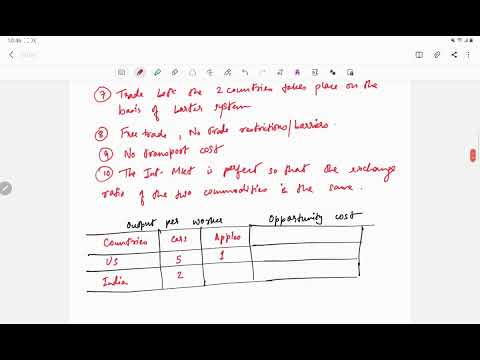 10:46
7 Trade betn the 2 countries takes place on the
basis of barter system
8 Free trade, No trade restrictions/barriers.
9 No transport cost
10 The Int. Mkt is perfect so that the exchange
ratio of the two commodities is the same.
Output per worker Opportunity cost
Countries Cars Apples
US 5 1
India 2